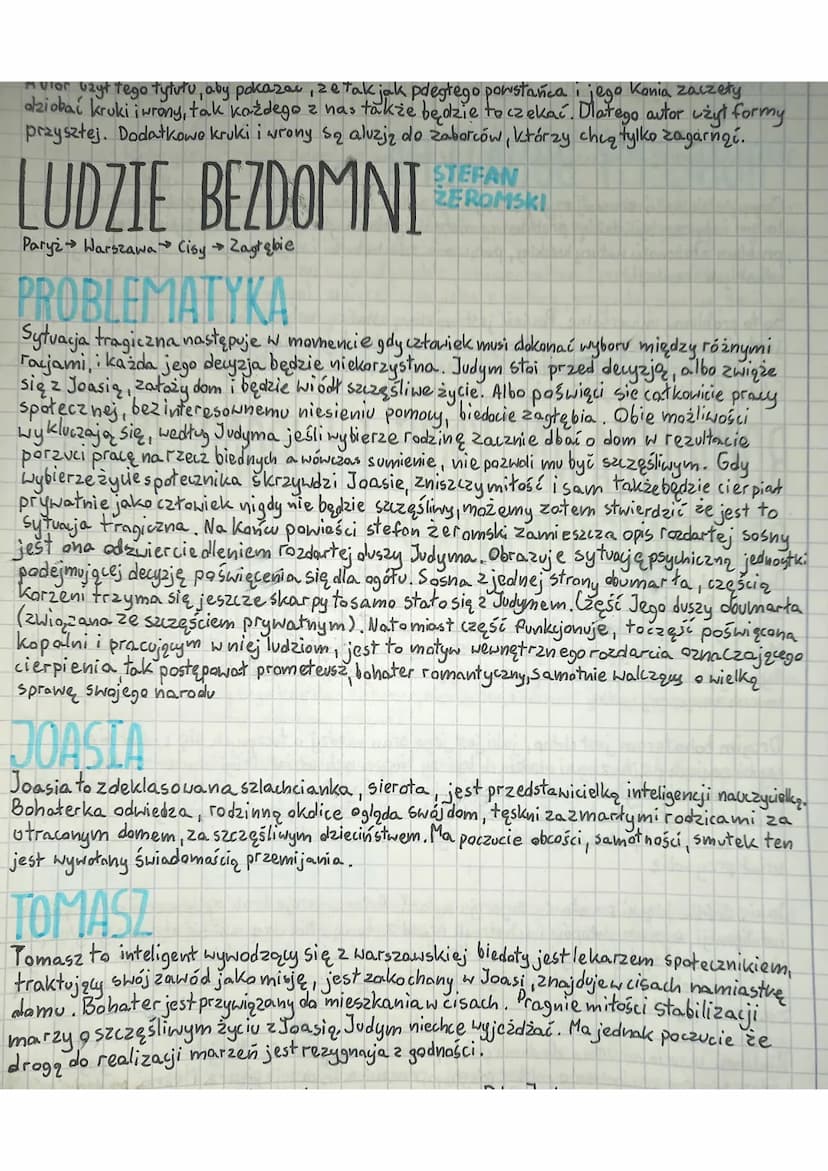 Autor użył tego tytułu, aby pokazać, że tak jak poległego powstańca i jego konia zaczęły
dziobać kruki i wrony, tak każdego z nas także będzie to czekać. Dlatego autor użył formy
przyszłej. Dodatkowo kruki i wrony są aluzją do zaborców, którzy chcą tylko zagarnąć.
LUDZIE BEZDOMNI STEFAN
ŻEROMSKI
Paryż → Warszawa → Cisy → Zagłębie
PROBLEMATYKA
Sytuacja tragiczna następuje w momencie gdy człowiek musi dokonać wyboru między różnymi
racjami, i każda jego decyzja będzie niekorzystna. Judym stoi przed decyzją, albo zwiąże
się z Joasią, założy dom i będzie wiódł szczęśliwe życie. Albo poświęci się całkowicie pracy
społecznej, bezinteresownemu niesieniu pomocy, biedocie zagłębia. Obie możliwości
wykluczają się, według Judyma jeśli wybierze rodzinę zacznie dbać o dom w rezultacie
porzuci pracę na rzecz biednych a wówczas sumienie, nie pozwoli mu być szczęśliwym. Gdy
wybierze życie społecznika skrzywdzi Joasię, zniszczy miłość i sam także będzie cierpiał
prywatnie jako człowiek nigdy nie będzie szczęśliwy, możemy zatem stwierdzić że jest to
sytuacja tragiczna. Na końcu powieści stefan żeromski zamieszcza opis rozdartej sosny
jest ona odzwierciedleniem rozdartej duszy Judyma. Obrazuje sytuację psychiczną jednostki
podejmującej decyzję poświęcenia się dla ogółu. Sosna z jednej strony obumarła, częścią
korzeni trzyma się jeszcze skarpy to samo stało się z Judymem. Część Jego duszy obumarła
(związana ze szczęściem prywatnym). Natomiast część funkcjonuje, to część poświęcona
kopalni i pracującym w niej ludziom, jest to motyw wewnętrznego rozdarcia oznaczającego
cierpienia, tak postępował prometeusz, bohater romantyczny, samotnie walczący o wielką
sprawę swojego narodu
JOASIA
Joasia to zdeklasowana szlachcianka, sierota, jest przedstawicielką inteligencji nauczycielką.
Bohaterka odwiedza, rodzinną okolice ogląda swój dom, tęskni za zmarłymi rodzicami za
utraconym domem, za szczęśliwym dzieciństwem. Ma poczucie obcości, samotności, smutek ten
jest wywołany świadomością przemijania.
TOMASZ
Tomasz to inteligent wywodzący się z warszawskiej biedoty jest lekarzem społecznikiem,
traktujący swój zawód jako misję, jest zakochany w Joasi, znajduje w cisach namiastkę
domu. Bohater jest przywiązany do mieszkania w cisach. Pragnie miłości stabilizacji
marzy o szczęśliwym życiu z Joasią. Judym niechce wyjeżdżać. Ma jednak poczucie że
drogą do realizacji marzeń jest rezygnacja z godności.